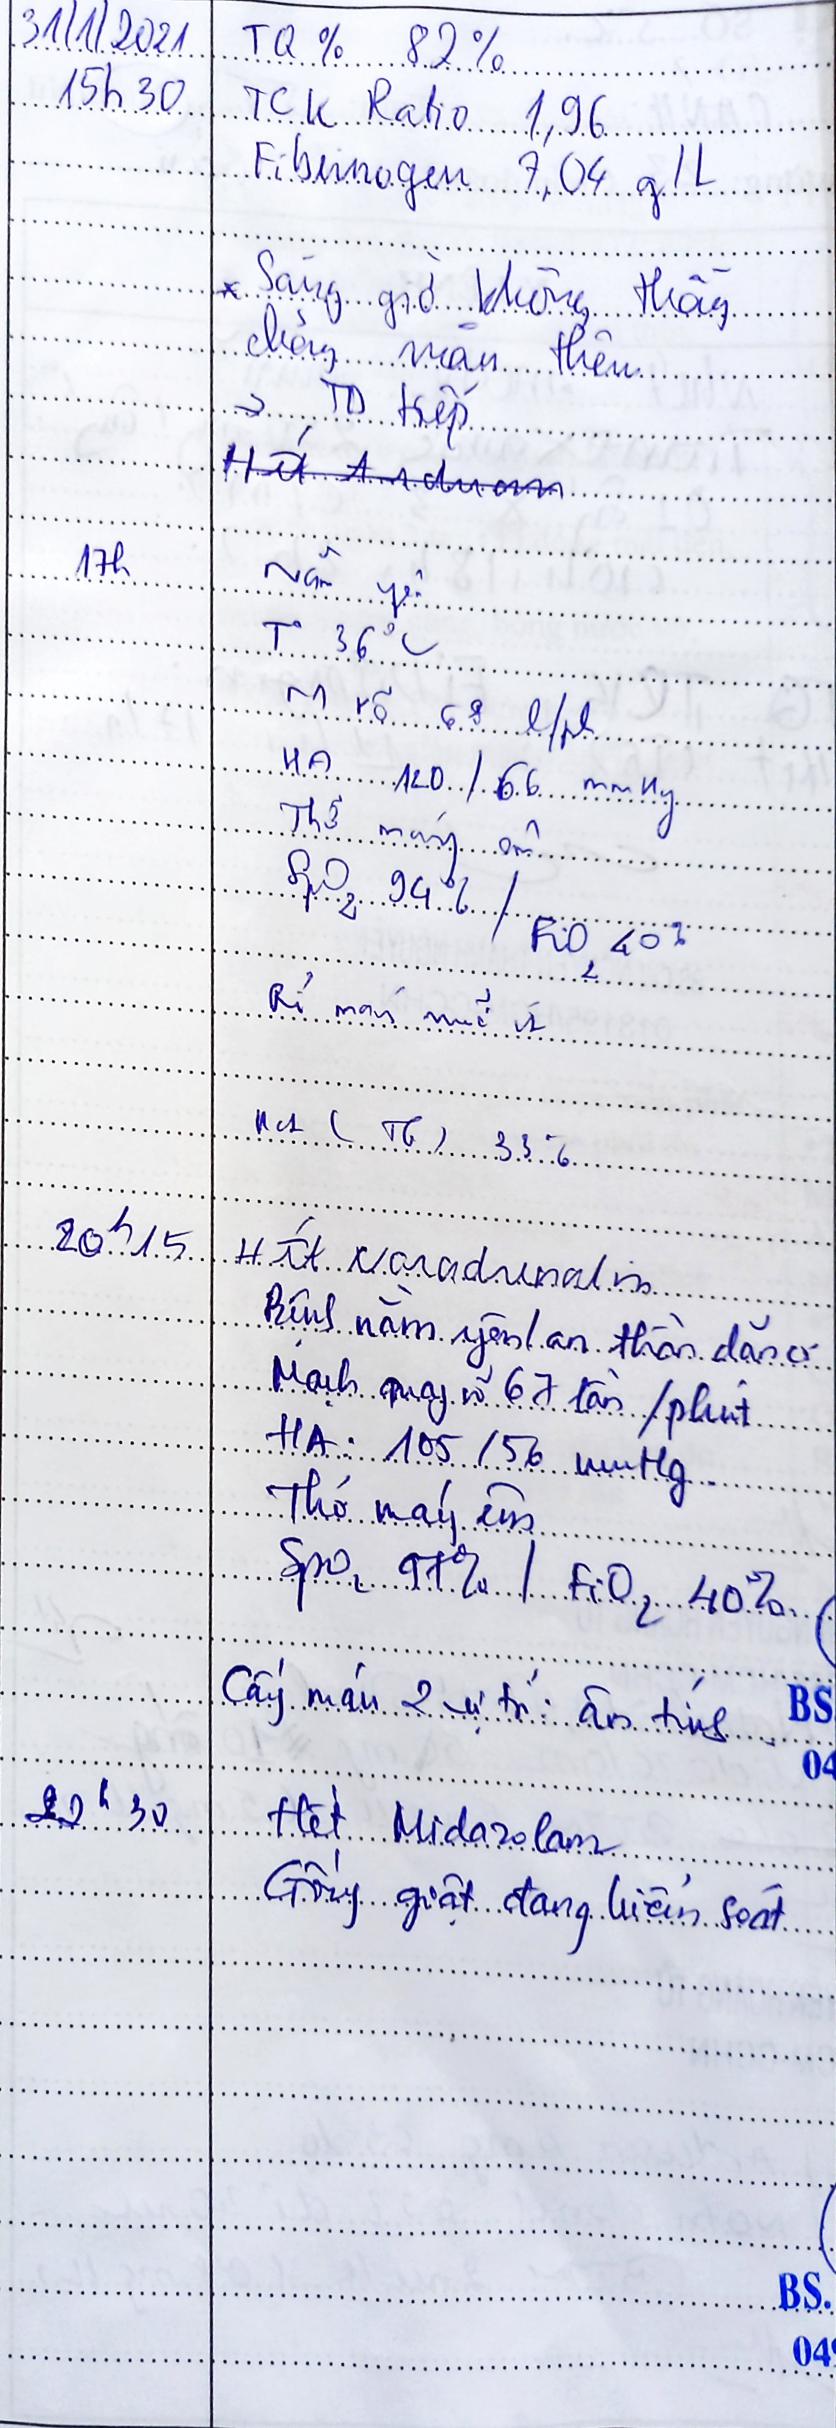 31/1/2021 TQ % 82%
15h30 TCK Ratio 1,96
Fibrinogen 7,04 g/L
* Sáng giờ không thấy
chảy máu thêm
→ TD tiếp
Hết Arduan
17h Nằm yên
T° 36°C
M rõ 68 l/ph
HA 120/66 mmHg
Thở máy êm
SpO2 94% /
FiO2 40%
Rỉ máu mũi ít
Hct (TB) 33%
20h15 Hết Noradrenalin
Bệnh nằm yên/an thần dãn cơ
Mạch quay rõ 67 lần/phút
HA: 105/56 mmHg
Thở máy êm
SpO2 97% / FiO2 40%
Cấy máu 2 vị trí: âm tính
BS.
04
22h30 Hết Midazolam
Gồng giật đang kiểm soát
BS.
049